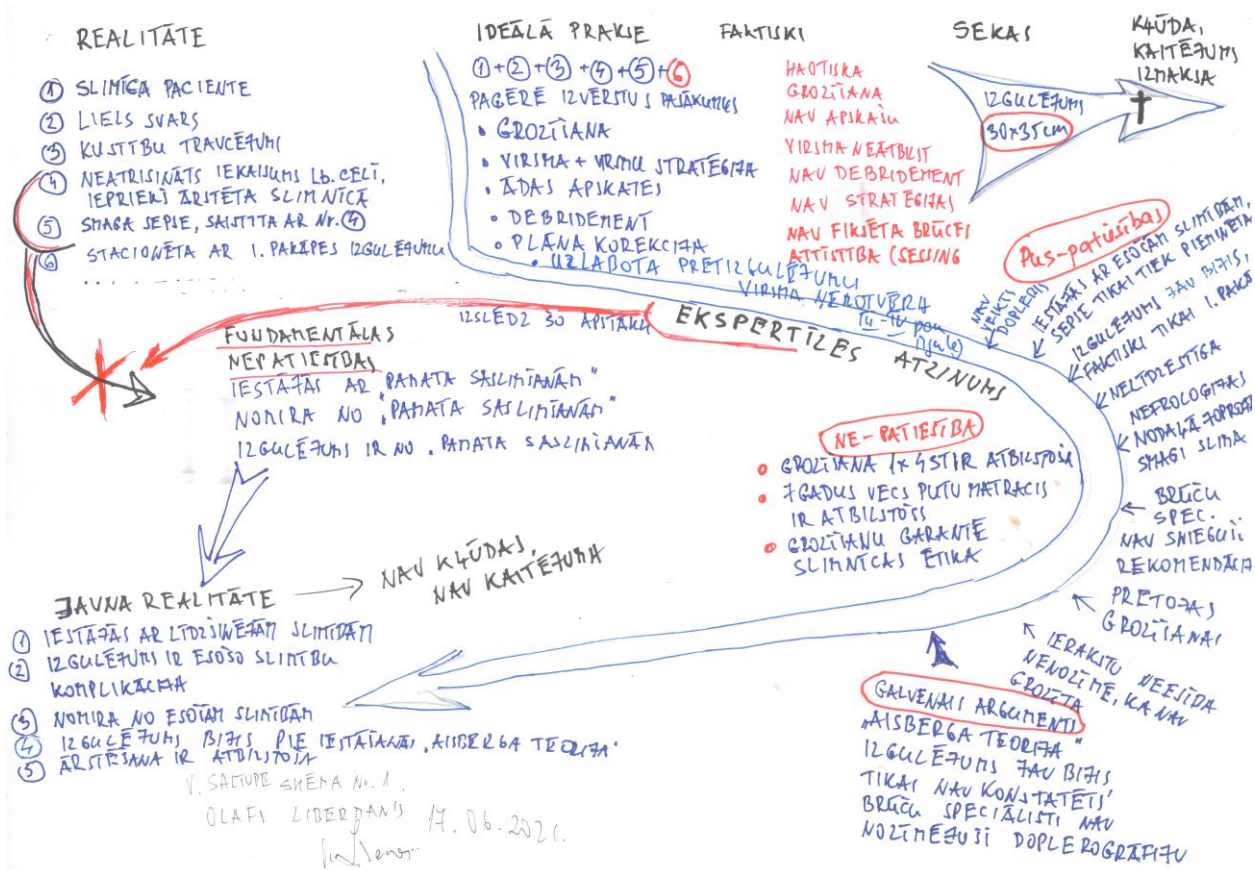 REALITĀTE
① SLIMĪGA PACIENTE
② LIELS SVARS
③ KUSTĪBU TRAUCĒJUMI
④ NEATRISINĀTS IEKAISUMS Lb. CELĪ,
IEPRIEKŠ ĀRSTĒTA SLIMNĪCĀ
⑤ SMAGA SEPSE, SAISTĪTA AR Nr. ④
⑥ STACIONĒTA AR 1. PAKĀPES IZGULĒJUMU
IDEĀLĀ PRAKSE
①+②+③+④+⑤+⑥
PAGĒRĒ IZVĒRSTUS PASĀKUMUS
• GROZĪŠANA
• VIRSMA + VIRSMU STRATĒĢIJA
• ĀDAS APSKATES
• DEBRIDEMENT
• PLĀNA KOREKCIJA
• UZLABOTA PRETIZGULĒJUMU
VIRSMA NEROTVĒRA
FAKTISKI
HAOTISKA
GROZĪŠANA
NAV APSKAŠU
VIRSMA NEATBILST
NAV DEBRIDEMENT
NAV STRATĒĢIJAS
NAV FIKSĒTA BRŪCES
ATTĪSTĪBA (SESSING
SEKAS
IZGULĒJUMS
30x35cm
KĻŪDA,
KAITĒJUMS
IZMAKSA
IZSLĒDZ 30 APSTĀKĻ
EKSPERTĪZES ATZINUMS
FUNDAMENTĀLAS
NEPATIESĪBAS
IESTĀJĀS AR "PAMATA SASLIMŠANĀM"
NOMIRA NO "PAMATA SASLIMŠANĀM"
IZGULĒJUMS IR NO "PAMATA SASLIMŠANĀM
Pus-patiesības
NAV
VEIKTS
DOPLERIS
IESTĀJĀS AR ESOŠĀM SLIMĪBĀM,
SEPSE TIKAI TIEK PIEMINĒTA
IZGULĒJUMS JAU BIJIS,
FAKTISKI TIKAI 1. PAKĀ
NELĪDZESTĪGA
NEFROLOĢIJAS
NODAĻĀ JOPROJĀ
SMAGI SLIMA
BRŪČU
SPEC.
NAV SNIEGUŠI
REKOMENDĀCIJ
PRETOJAS
GROZĪŠANAI
IERAKSTU NEESĪBA
NENOZĪMĒ, KA NAV
GROZĪTA
NE-PATIESĪBA
• GROZĪŠANA 1x4ST IR ATBILSTOŠA
• 7 GADUS VECS PUTU MATRACIS
IR ATBILSTOŠS
• GROZĪŠANU GARANTĒ
SLIMNĪCAS ĒTIKA
GALVENAIS ARGUMENTS
"AISBERGA TEORIJA"
IZGULĒJUMS JAU BIJIS
TIKAI NAV KONSTATĒTS'
BRŪČU SPECIĀLISTI NAV
NOZĪMĒJUŠI DOPLEROGRĀFIJU
JAUNA REALITĀTE
NAV KĻŪDAS,
NAV KAITĒJUMA
① IESTĀJĀS AR LĪDZŠINĒJĀM SLIMĪBĀM
② IZGULĒJUMS IR ESOŠO SLIMĪBU
KOMPLIKĀCIJA
③ NOMIRA NO ESOŠĀM SLIMĪBĀM
④ IZGULĒJUMS BIJIS PIE IESTĀŠANĀS "AISBERGA TEORIJA"
⑤ ĀRSTĒŠANA IR ATBILSTOŠA
SHĒMA Nr. 1.
OLAFS LIBERMANIS
17. 06. 2021.